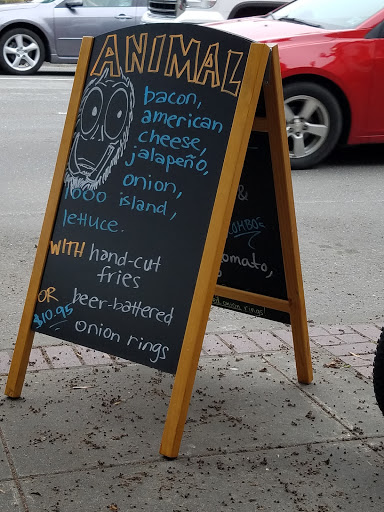 ANIMAL
bacon,
american
cheese,
jalapeño,
onion,
1000 island,
lettuce.
WITH hand-cut
fries
OR beer-battered
$10.95 onion rings
&
COMBOS
tomato,
onion rings!